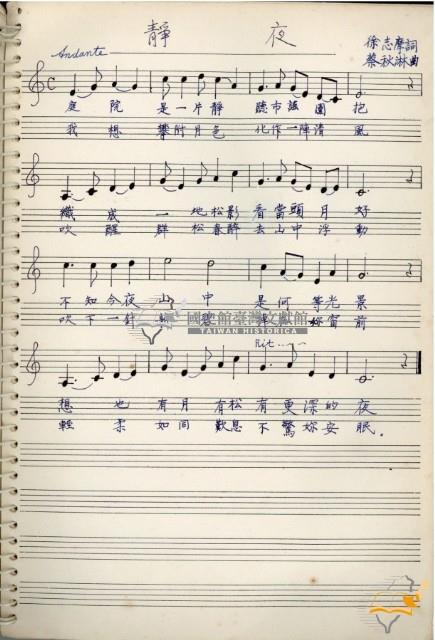 靜 夜
徐志摩詞
Andante
蔡秋淋曲
庭院是一片靜聽市謠圍抱
我想攀附月色化作一陣清風
織成一地松影看當頭月好
吹醒群松春醉去山中浮動
不知今夜山中是何等光景
吹下一針 妳窗前
國史館臺灣文獻館
TAIWAN HISTORICA
Rit......
想也有月有松有更深的夜
輕柔如同歎息不驚妳安眠.